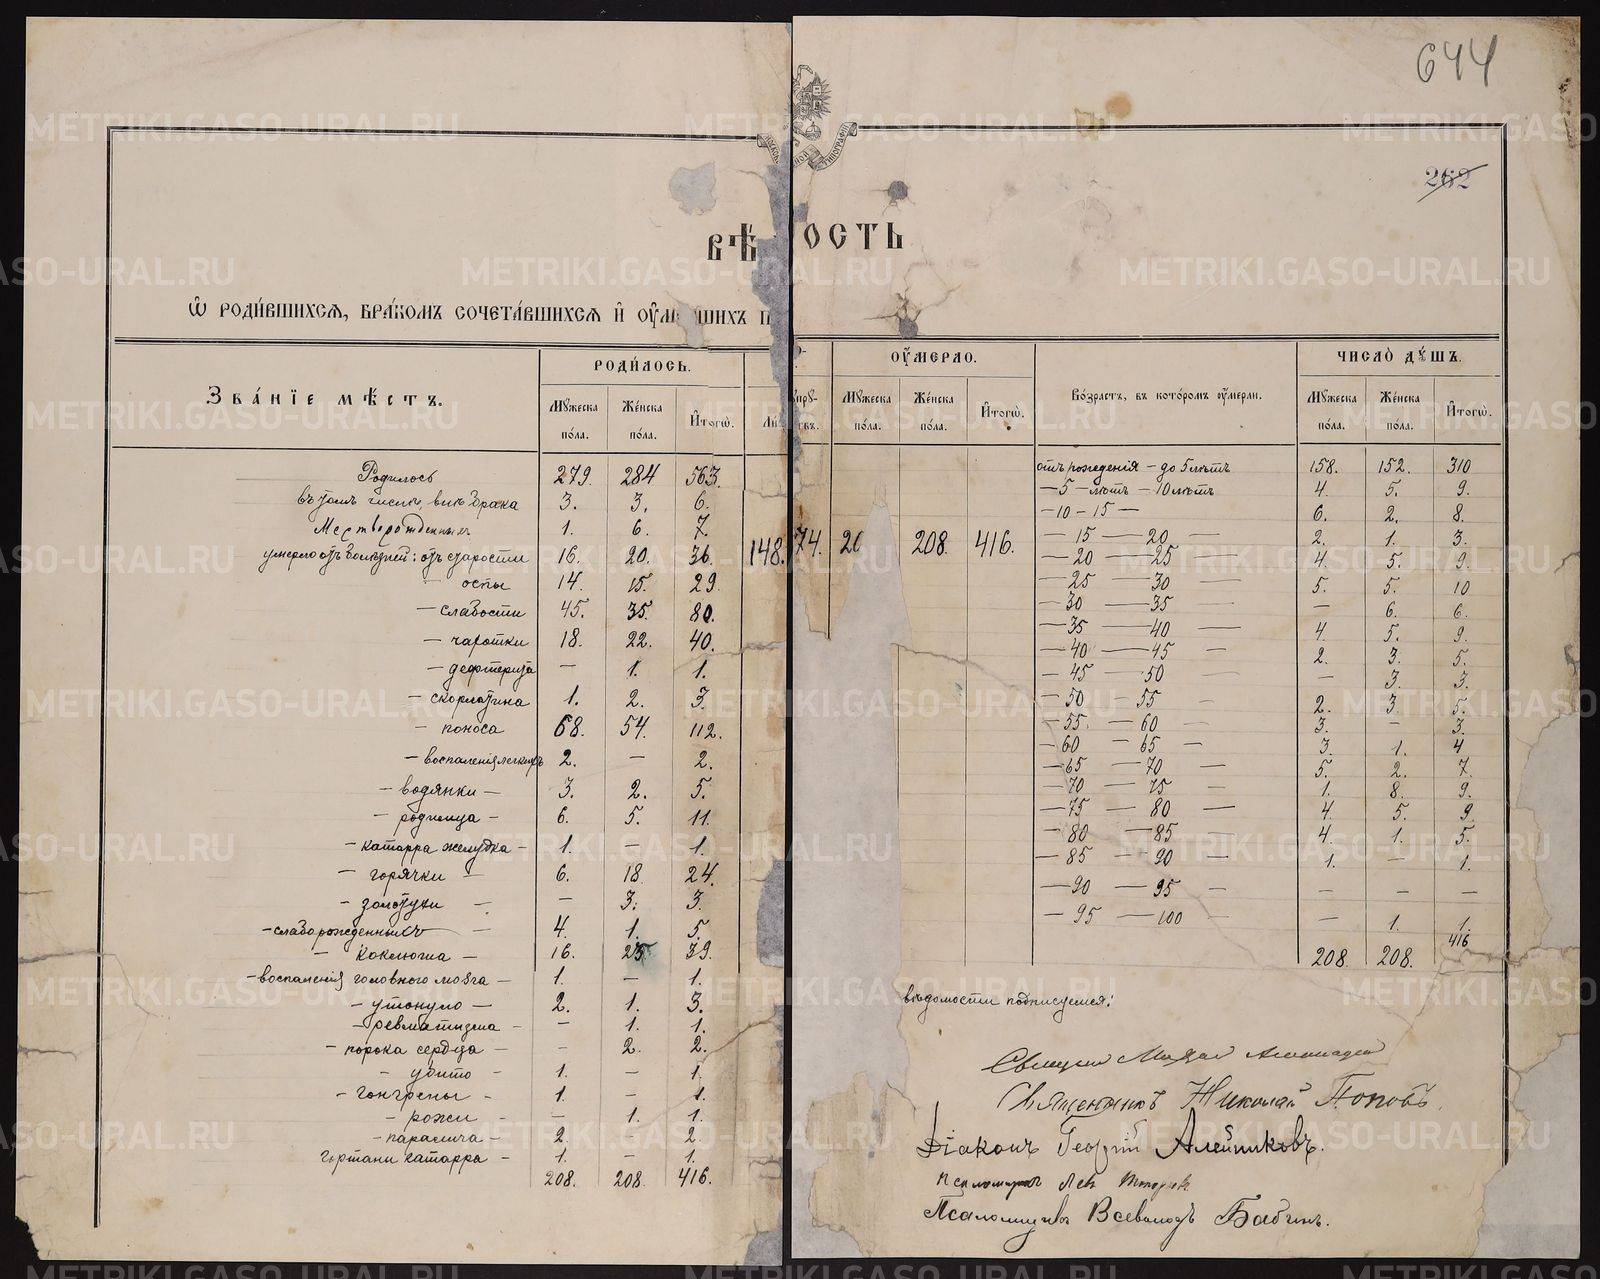 644
262
ВѢ ОСТЬ
Ѽ РОДИ́ВШИХСѦ, БРА́КОМЪ СОЧЕТА́ВШИХСѦ И҆ ОУ҆М ШИХЪ П
ЗВА́НІЕ МѢ́СТЪ.
РОДИ́ЛОСЬ.
Мꙋ́жеска по́ла.
Же́нска по́ла.
И҆тогѡ̀.
ОУ҆́МЕРЛО.
Мꙋ́жеска по́ла.
Же́нска по́ла.
И҆тогѡ̀.
Во́зрастъ, въ кото́ромъ оу҆́мерли.
ЧИСЛО̀ ДꙊ́ШЪ.
Мꙋ́жеска по́ла.
Же́нска по́ла.
И҆тогѡ̀.
Родилось 279. 284 563.
въ томъ числѣ внѣ брака 3. 3. 6.
Мертворожденныхъ 1. 6. 7.
умерло отъ болѣзней: отъ старости 16. 20. 36.
148. 74. 20 208. 416.
— оспы 14. 15. 29.
— слабости 45. 35. 80.
— чахотки 18. 22. 40.
— дефтерита — 1. 1.
— скорлатина 1. 2. 3.
— поноса 58. 54. 112.
— воспаленія легкихъ 2. — 2.
— водянки — 3. 2. 5.
— родимца — 6. 5. 11.
— катарра желудка — 1. — 1.
— горячки — 6. 18. 24.
— золотухи — — 3. 3.
— слаборожденныхъ — 4. 1. 5.
— коклюша — 16. 23. 39.
— воспаленія головного мозга — 1. — 1.
— утонуло — 2. 1. 3.
— ревматизма — — 1. 1.
— порока сердца — — 2. 2.
— убито — 1. — 1.
— гонгрены — 1. — 1.
— рожи — — 1. 1.
— паралича — 2. — 2.
гортани катарра — 1. — 1.
208. 208. 416.
отъ рожденія — до 5 лѣтъ 158. 152. 310
— 5 — лѣтъ — 10 лѣтъ 4. 5. 9.
— 10 — 15 — 6. 2. 8.
— 15 — 20 — 2. 1. 3.
— 20 — 25 4. 5. 9.
— 25 — 30 — 5. 5. 10
— 30 — 35 — — 6. 6.
— 35 — 40 — 4. 5. 9.
— 40 — 45 — 2. 3. 5.
— 45 — 50 — 3. 3.
— 50 — 55 — 2. 3. 5.
— 55 — 60 — 3. — 3.
— 60 — 65 — 3. 1. 4
— 65 — 70 — 5. 2. 7.
— 70 — 75 — 1. 8. 9.
— 75 — 80 — 4. 5. 9
— 80 — 85 — 4. 1. 5.
— 85 — 90 — 1. — 1.
— 90 — 95 — — — —
— 95 — 100 — — 1. 1.
208. 208. 416
вѣдомости подписуемся:
Священникъ Николай Поповъ.
Діаконъ Георгій Алейниковъ.
Псаломщикъ Лев
Псаломщикъ Всеволодъ Бабинъ.
METRIKI.GASO-URAL.RU